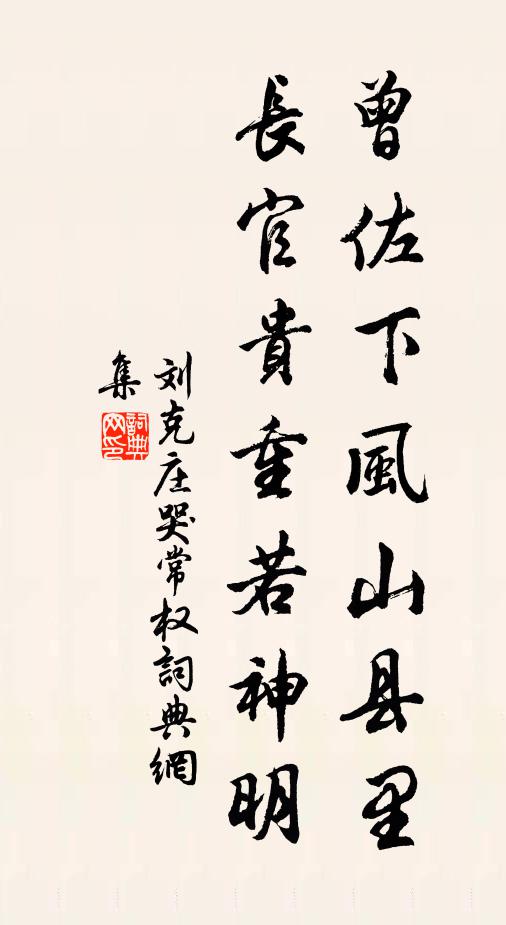 曾佐下風山县里
長官貴重若神明
刘克庄哭常权詞典網
集
詞典
网印